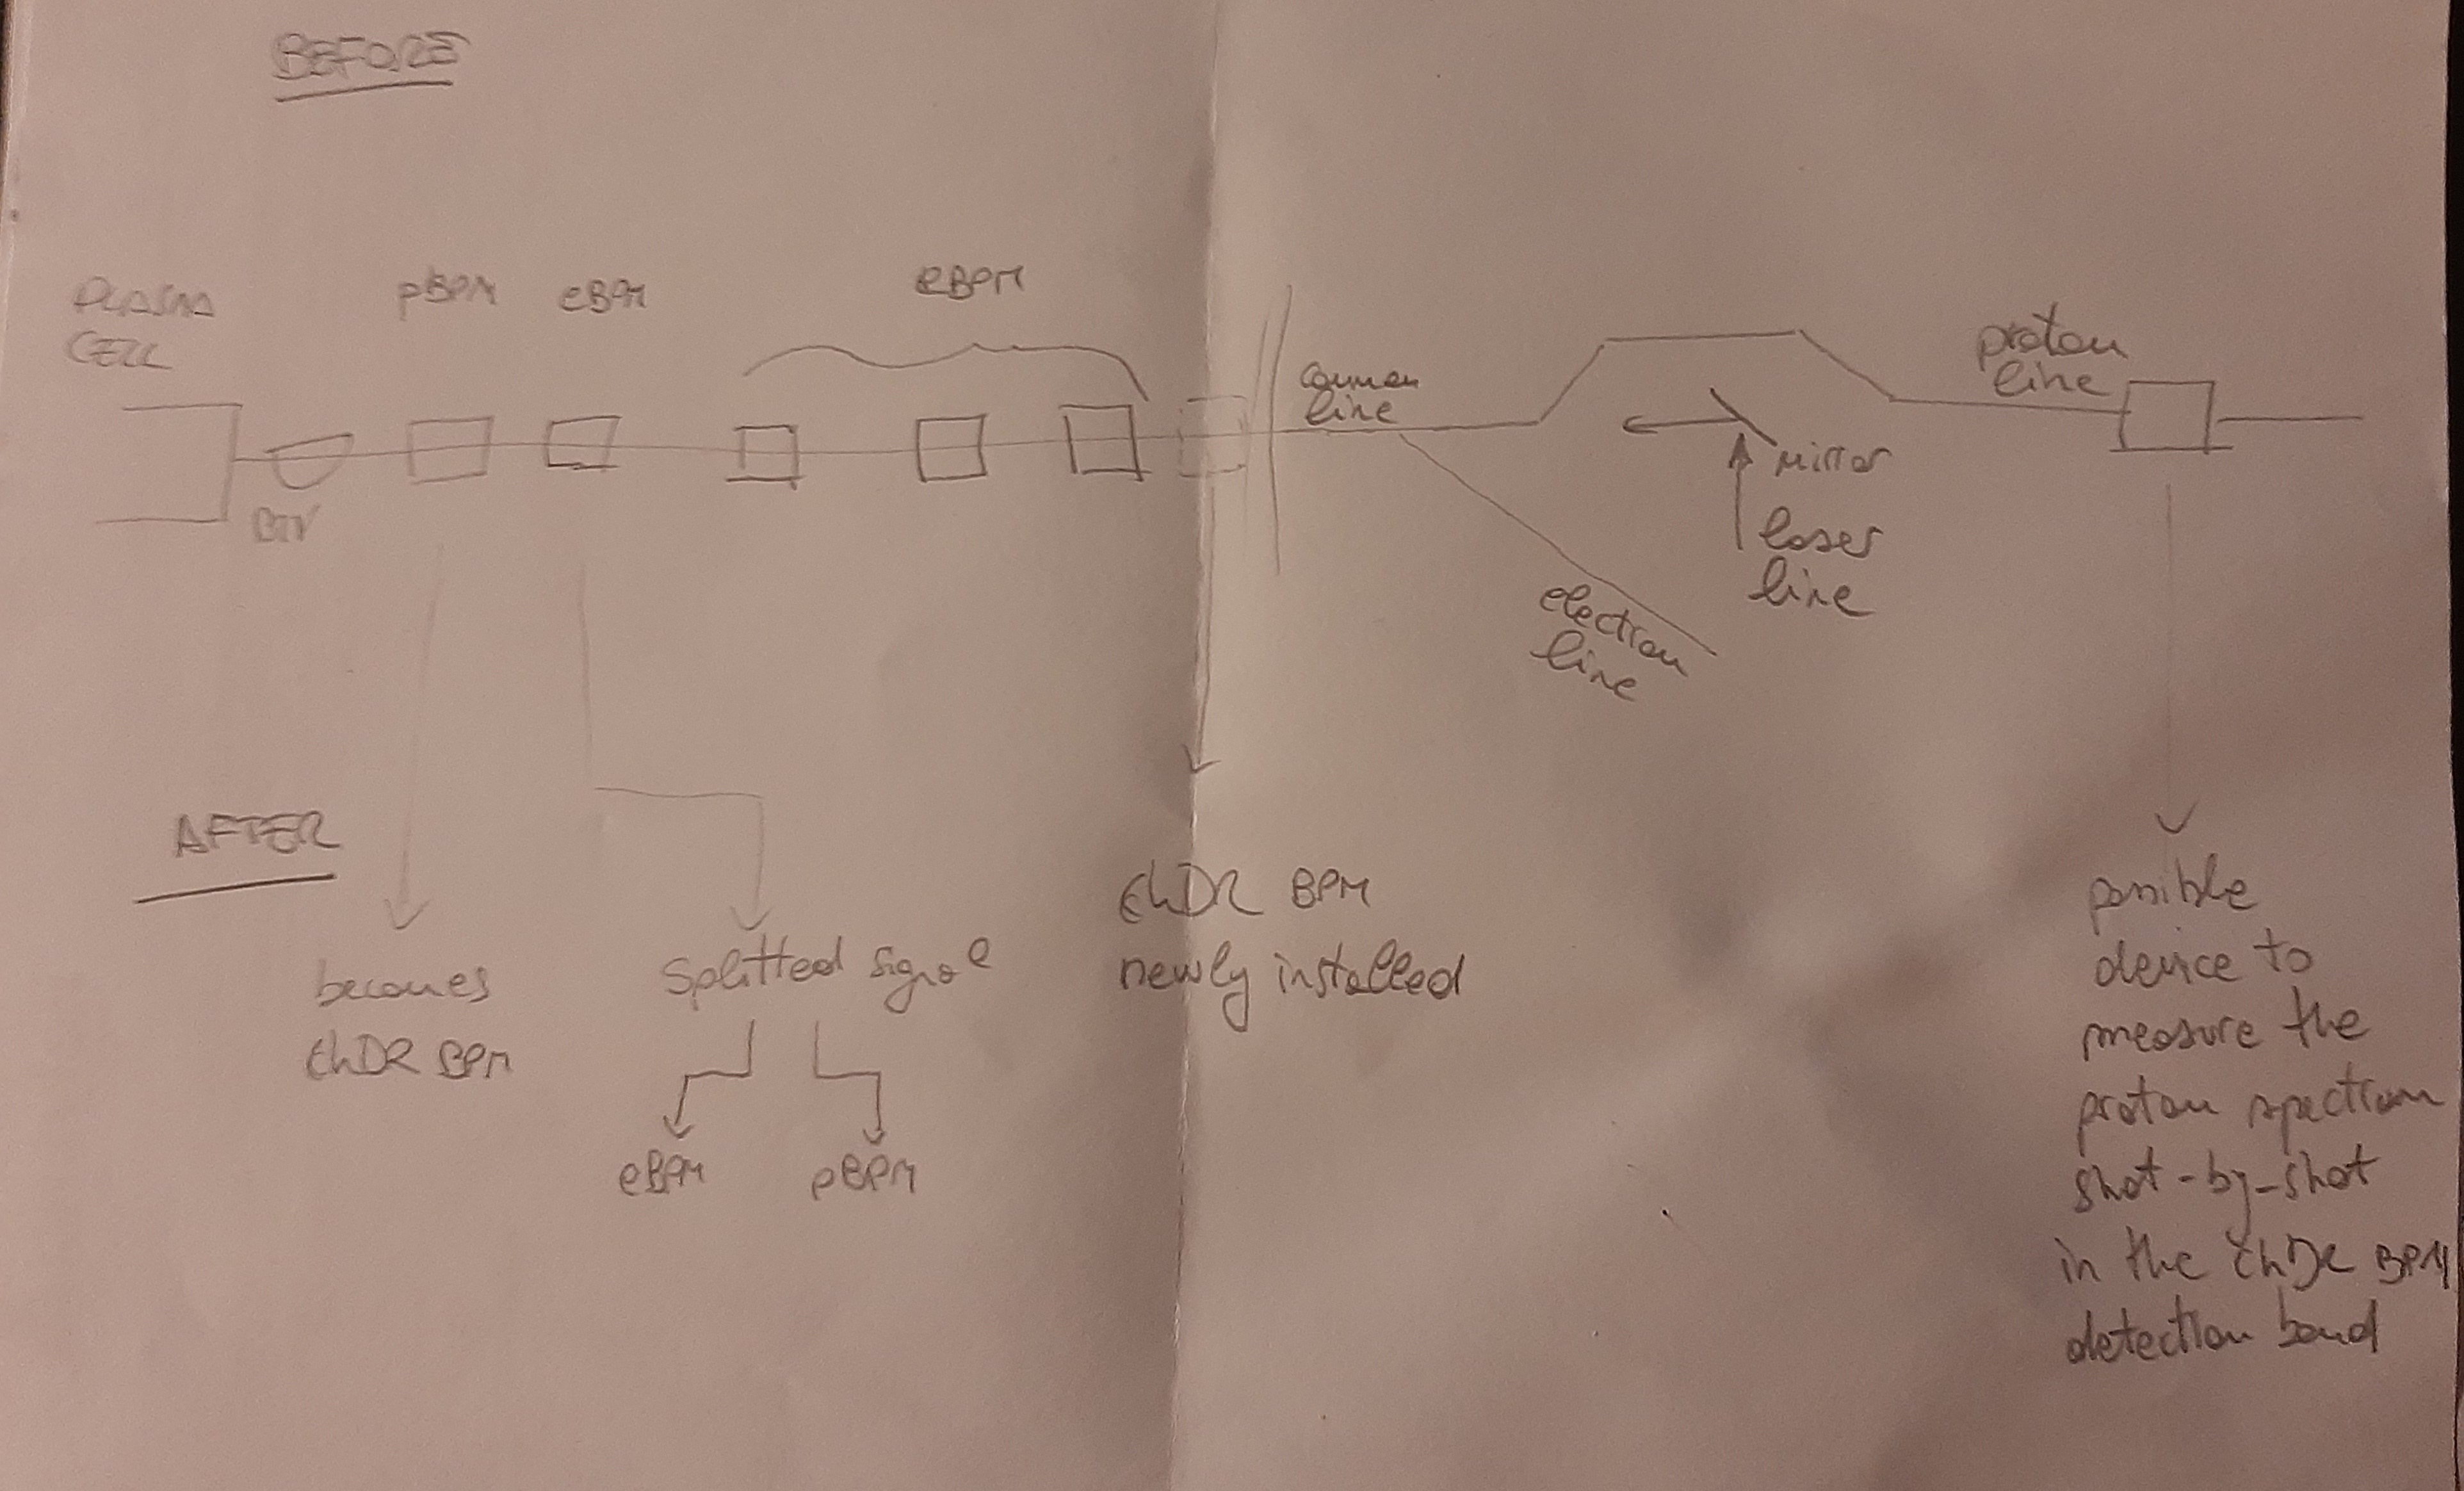 BEFORE
PLASMA
CELL
pBPM
eBPM
eBPM
BTV
common
line
proton
line
mirror
laser
line
electron
line
AFTER
becomes
ChDR BPM
Splitted signal
eBPM
pBPM
ChDR BPM
newly installed
possible
device to
measure the
proton spectrum
shot-by-shot
in the ChDR BPM
detection band